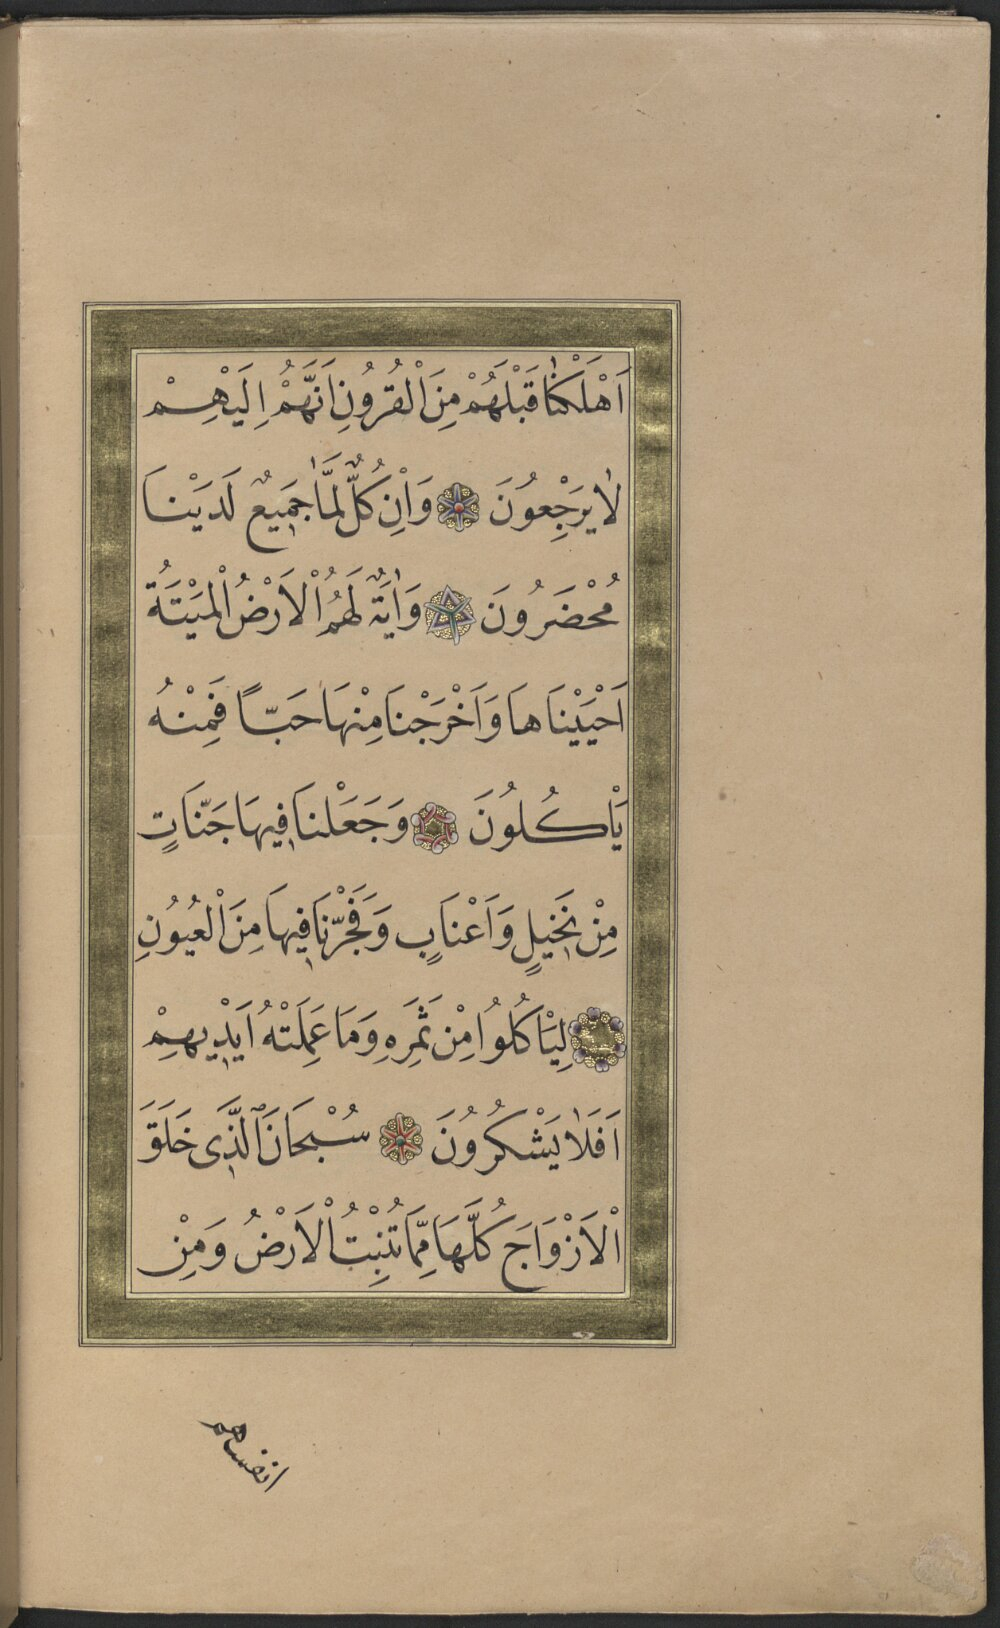 اَهْلَكْنَا قَبْلَهُمْ مِنَ الْقُرُونِ اَنَّهُمْ اِلَيْهِمْ
لَا يَرْجِعُونَ وَاِنْ كُلٌّ لَمَّا جَمِيعٌ لَدَيْنَا
مُحْضَرُونَ وَاٰيَةٌ لَهُمُ الْاَرْضُ الْمَيْتَةُ
اَحْيَيْنَاهَا وَاَخْرَجْنَا مِنْهَا حَبًّا فَمِنْهُ
يَاْكُلُونَ وَجَعَلْنَا فِيهَا جَنَّاتٍ
مِنْ نَخِيلٍ وَاَعْنَابٍ وَفَجَّرْنَا فِيهَا مِنَ الْعُيُونِ
لِيَاْكُلُوا مِنْ ثَمَرِهِ وَمَا عَمِلَتْهُ اَيْدِيهِمْ
اَفَلَا يَشْكُرُونَ سُبْحَانَ الَّذِى خَلَقَ
الْاَزْوَاجَ كُلَّهَا مِمَّا تُنْبِتُ الْاَرْضُ وَمِنْ
انفسهم